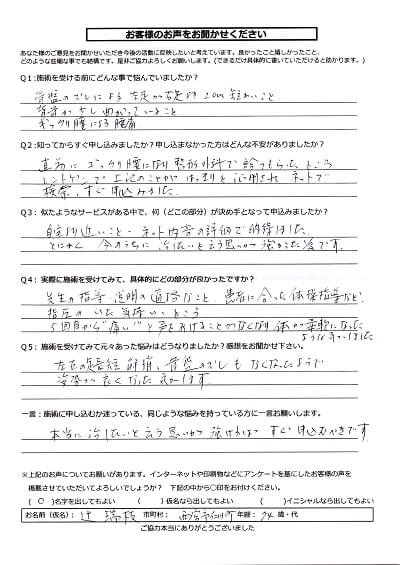 お客様のお声をお聞かせください
あなた様のご意見をお聞かせいただき今後の活動に反映したいと考えています。良かったこと嬉しかったこと、
どのような些細な事でも結構です。是非ご協力よろしくお願いします。(できるだけ具体的に書いていただけると助かります。)
Q1:施術を受ける前にどんな事で悩んでいましたか?
骨盤のズレによる左足が右足より2cm短いこと
背骨が少し曲がっていること
ギックリ腰による腰痛
Q2:知ってからすぐ申し込みましたか?申し込まなかった方はどんな不安がありましたか?
直前にギックリ腰になり整形外科で診てもらったところ
レントゲンで上記のことがはっきりと ネットで
検索、すぐ申込みました。
Q3:似たようなサービスがある中で、何(どこの部分)が決め手となって申込みましたか?
自宅より近いこと・ネット内容の評価で納得した
とにかく今のうちに治したいと云う思いが強かった
Q4:実際に施術を受けてみて、具体的にどの部分が良かったですか?
先生の指導・説明の適切なこと、患者に合った体操指導など
指圧のいた気持いところ
5回目から"痛い"と声を上げることがなくなり体が柔軟になった
Q5:施術を受けてみて元々あった悩みはどうなりましたか?感想をお聞かせ下さい。
左右の 解消、骨盤のズレもなくなったようで
姿勢が良くなった 気がします。
一言:施術に申し込むか迷っている、同じような悩みを持っている方に一言お願いします。
本当に治したいと云う思いが強ければすぐ申込むべきです
※上記のお声についてお願いがあります。インターネットや印刷物などにアンケートを基にしたお客様の声を
掲載させていただいてよろしいでしょうか? 下記の中から〇印をお付けください。
(〇)名字を出してもよい ( )仮名なら出してもよい ( )イニシャルなら出してもよい
お名前(仮名): 辻 市町村: 西宮市 年齢: 74 歳・代
ご協力本当にありがとうございました